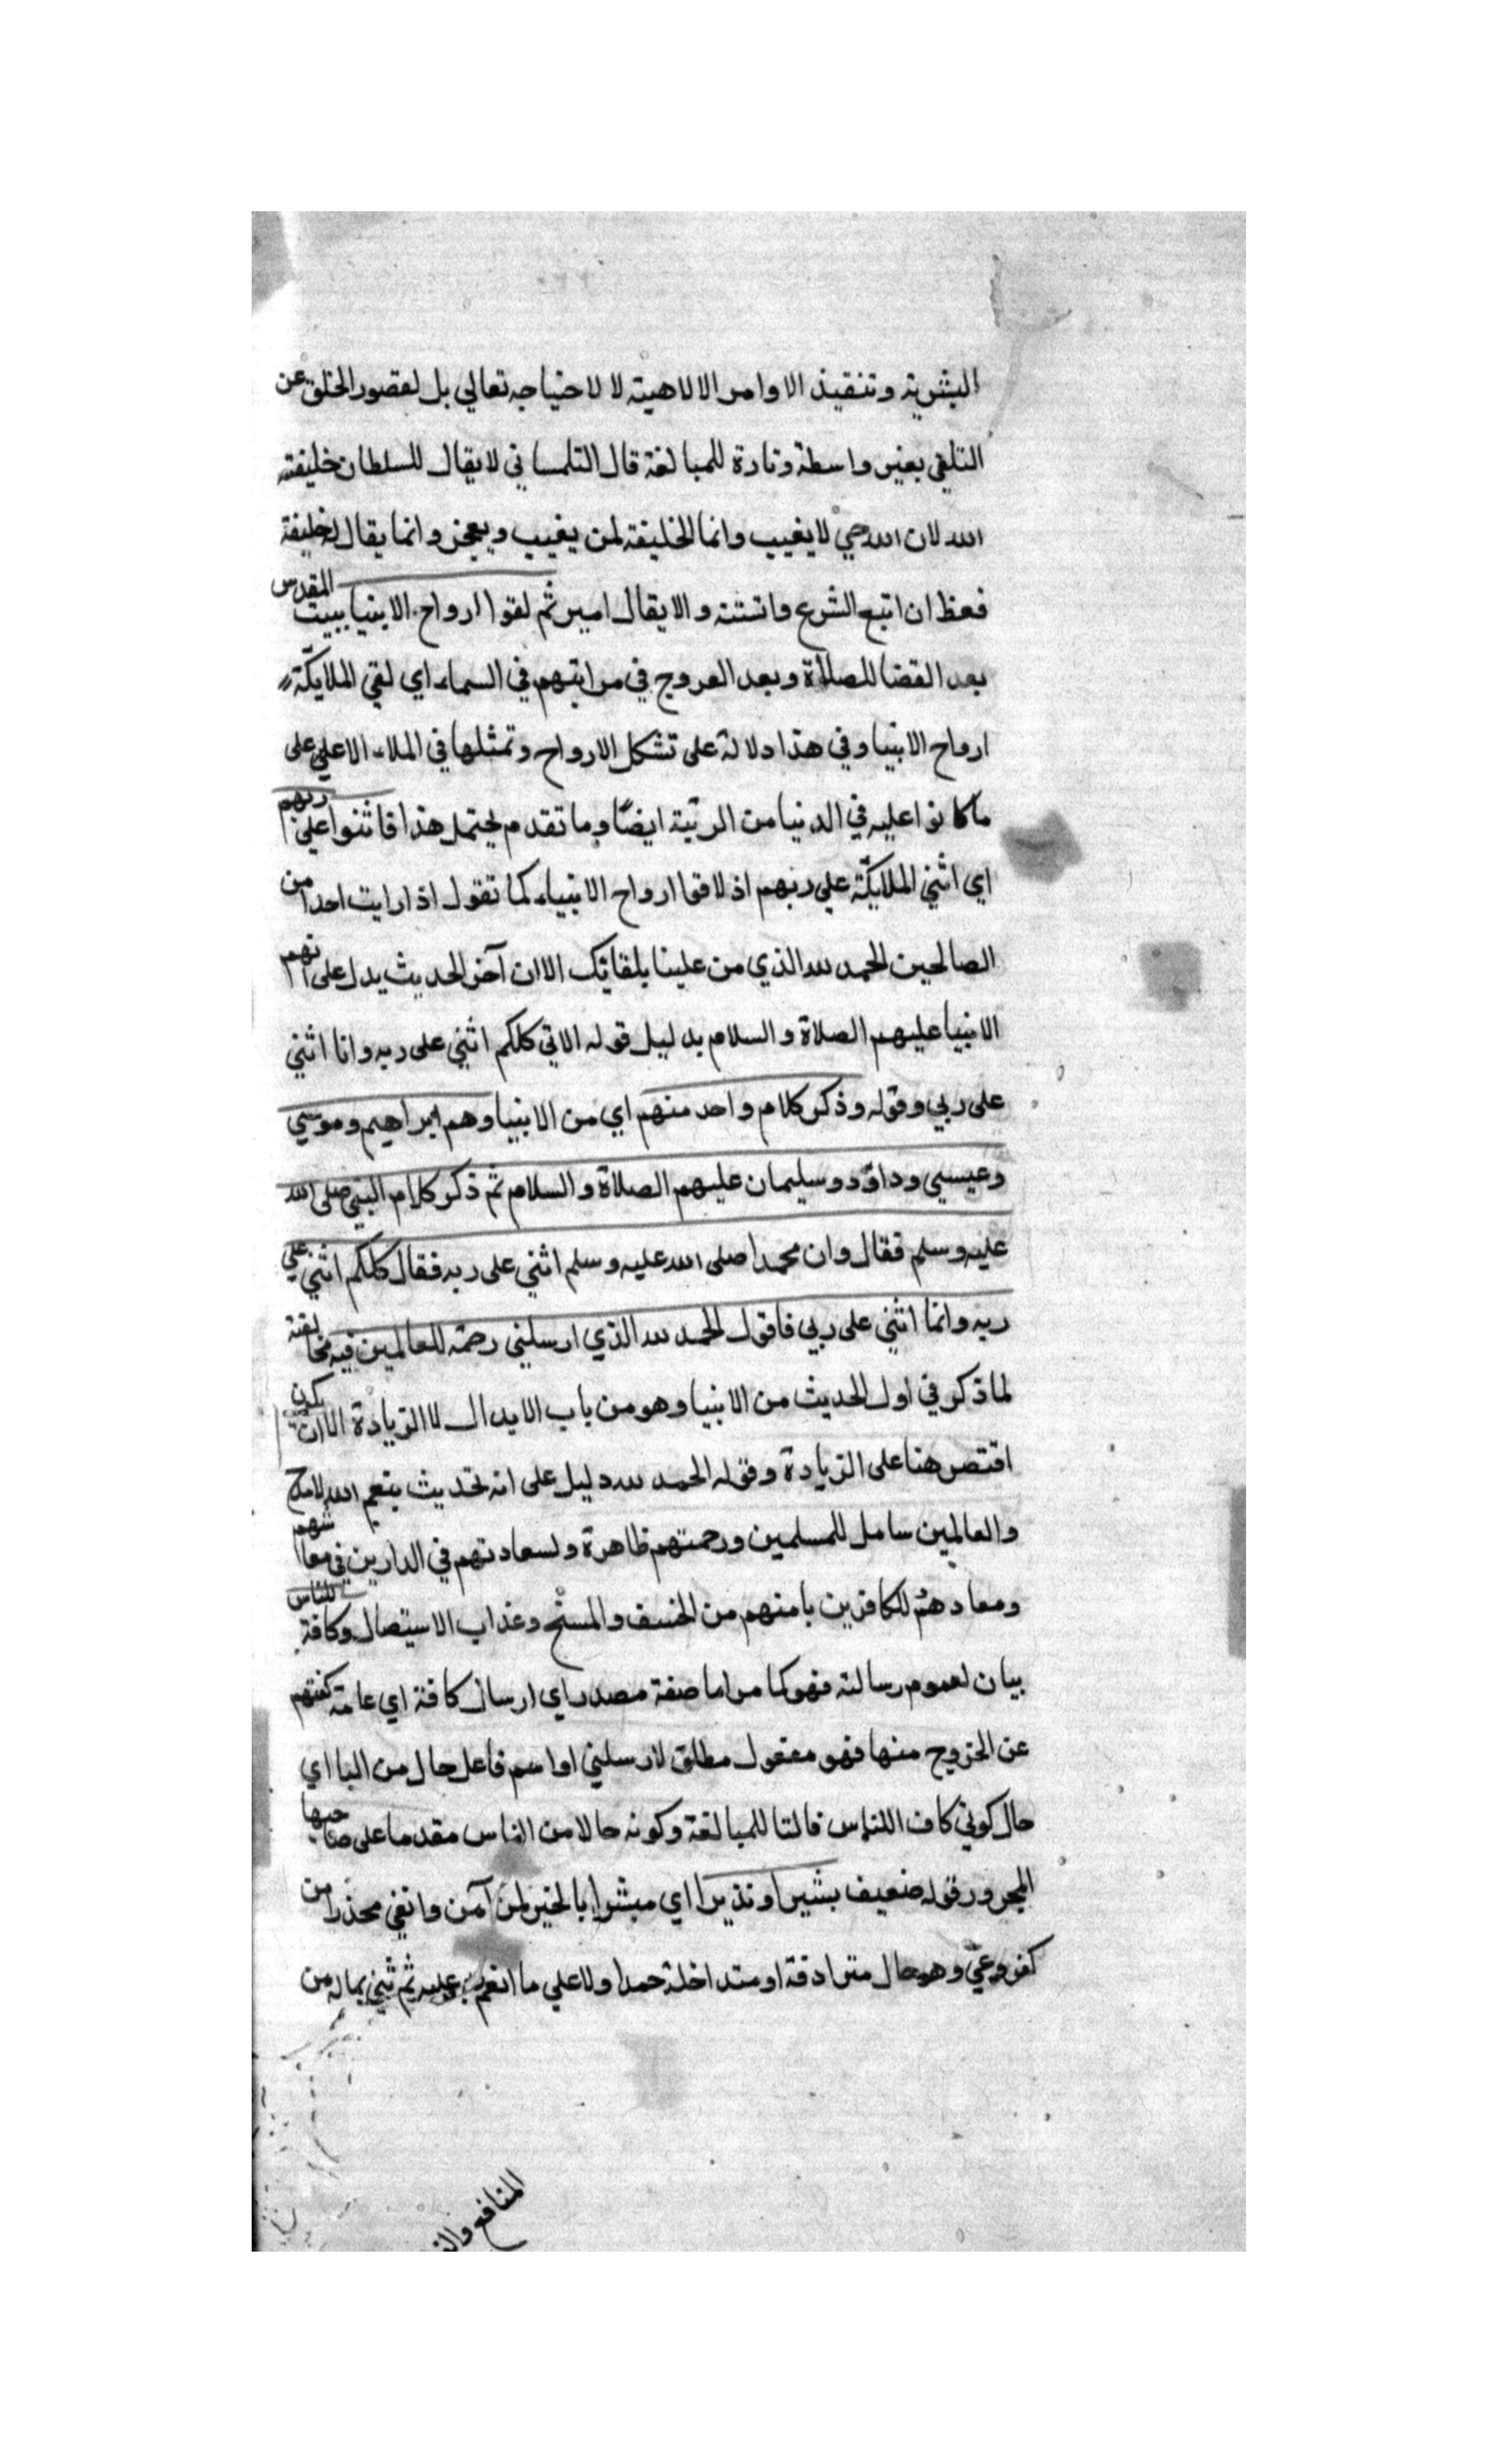 البشرية وتنفيذ الاوامر الالاهية لا لاحتياجه تعالي بل لقصور الخلق عن
التلقي بغير واسطة وتارة للمبالغة قال التلمساني لا يقال للسلطان خليفة
الله لان الله حي لا يغيب وانما الخليفة لمن يغيب ويعجز وانما يقال له خليفة
فعظ ان اتبع الشرع واستنه والا يقال امير ثم لقوا ارواح الانبيا ببيت المقدس
بعد القضا للصلاة وبعد العروج في مراتبهم في السماء اي لقي الملايكة
ارواح الانبيا وفي هذا دلالة على تشكل الارواح وتمثلها في الملاء الاعلي على
ما كانوا عليه في الدنيا من الرتبة ايضًا وما تقدم يحتمل هذا فاثنوا علي ربهم
اي اثني الملايكة علي ربهم اذ لاقوا ارواح الانبياء كما تقول اذا رايت احدا من
الصالحين الحمد لله الذي من علينا بلقائك الا ان آخر الحديث يدل على انهم
الانبيا عليهم الصلاة والسلام بدليل قوله الاتي كلكم اثني على ربه وانا اثني
على ربي وقوله وذكر كلام واحد منهم اي من الانبيا وهم ابراهيم وموسي
وعيسي وداود وسليمان عليهم الصلاة والسلام ثم ذكر كلام النبي صلى الله
عليه وسلم فقال وان محمدا صلى الله عليه وسلم اثني على ربه فقال كلكم اثني علي
ربه وانا اثني على ربي فاقول الحمد لله الذي ارسلني رحمة للعالمين فيه مخالفة
لما ذكر في اول الحديث من الانبيا وهو من باب الابدال لا الزيادة الا ان يكون
اقتصر هنا على الزيادة وقوله الحمد لله دليل على انه تحديث بنعم الله لا مدح
والعالمين سامل للمسلمين ورحمتهم ظاهرة ولسعادتهم في الدارين في معاشهم
ومعادهم للكافرين بامنهم من الخسف والمسخ وعذاب الاستيصال وكافة للناس
بيان لعموم رسالته فهو كما مر اما صفة مصدر اي ارسال كافة اي عامة كفتهم
عن الخروج منها فهو مفعول مطلق لارسلني او اسم فاعل حال من اليا اي
حال كوني كاف اللناس فالتا للمبالغة وكونه حالا من الناس مقدما على صاحبها
المجرور قوله ضعيف بشيرا ونذيرا اي مبشرا بالخير لمن آمن واتقي محذرا من
كفر وعي وهو حال مترادفة او متداخلة حمدا ولا علي ما انعم به عليه ثم ثني بما له من
المنافع